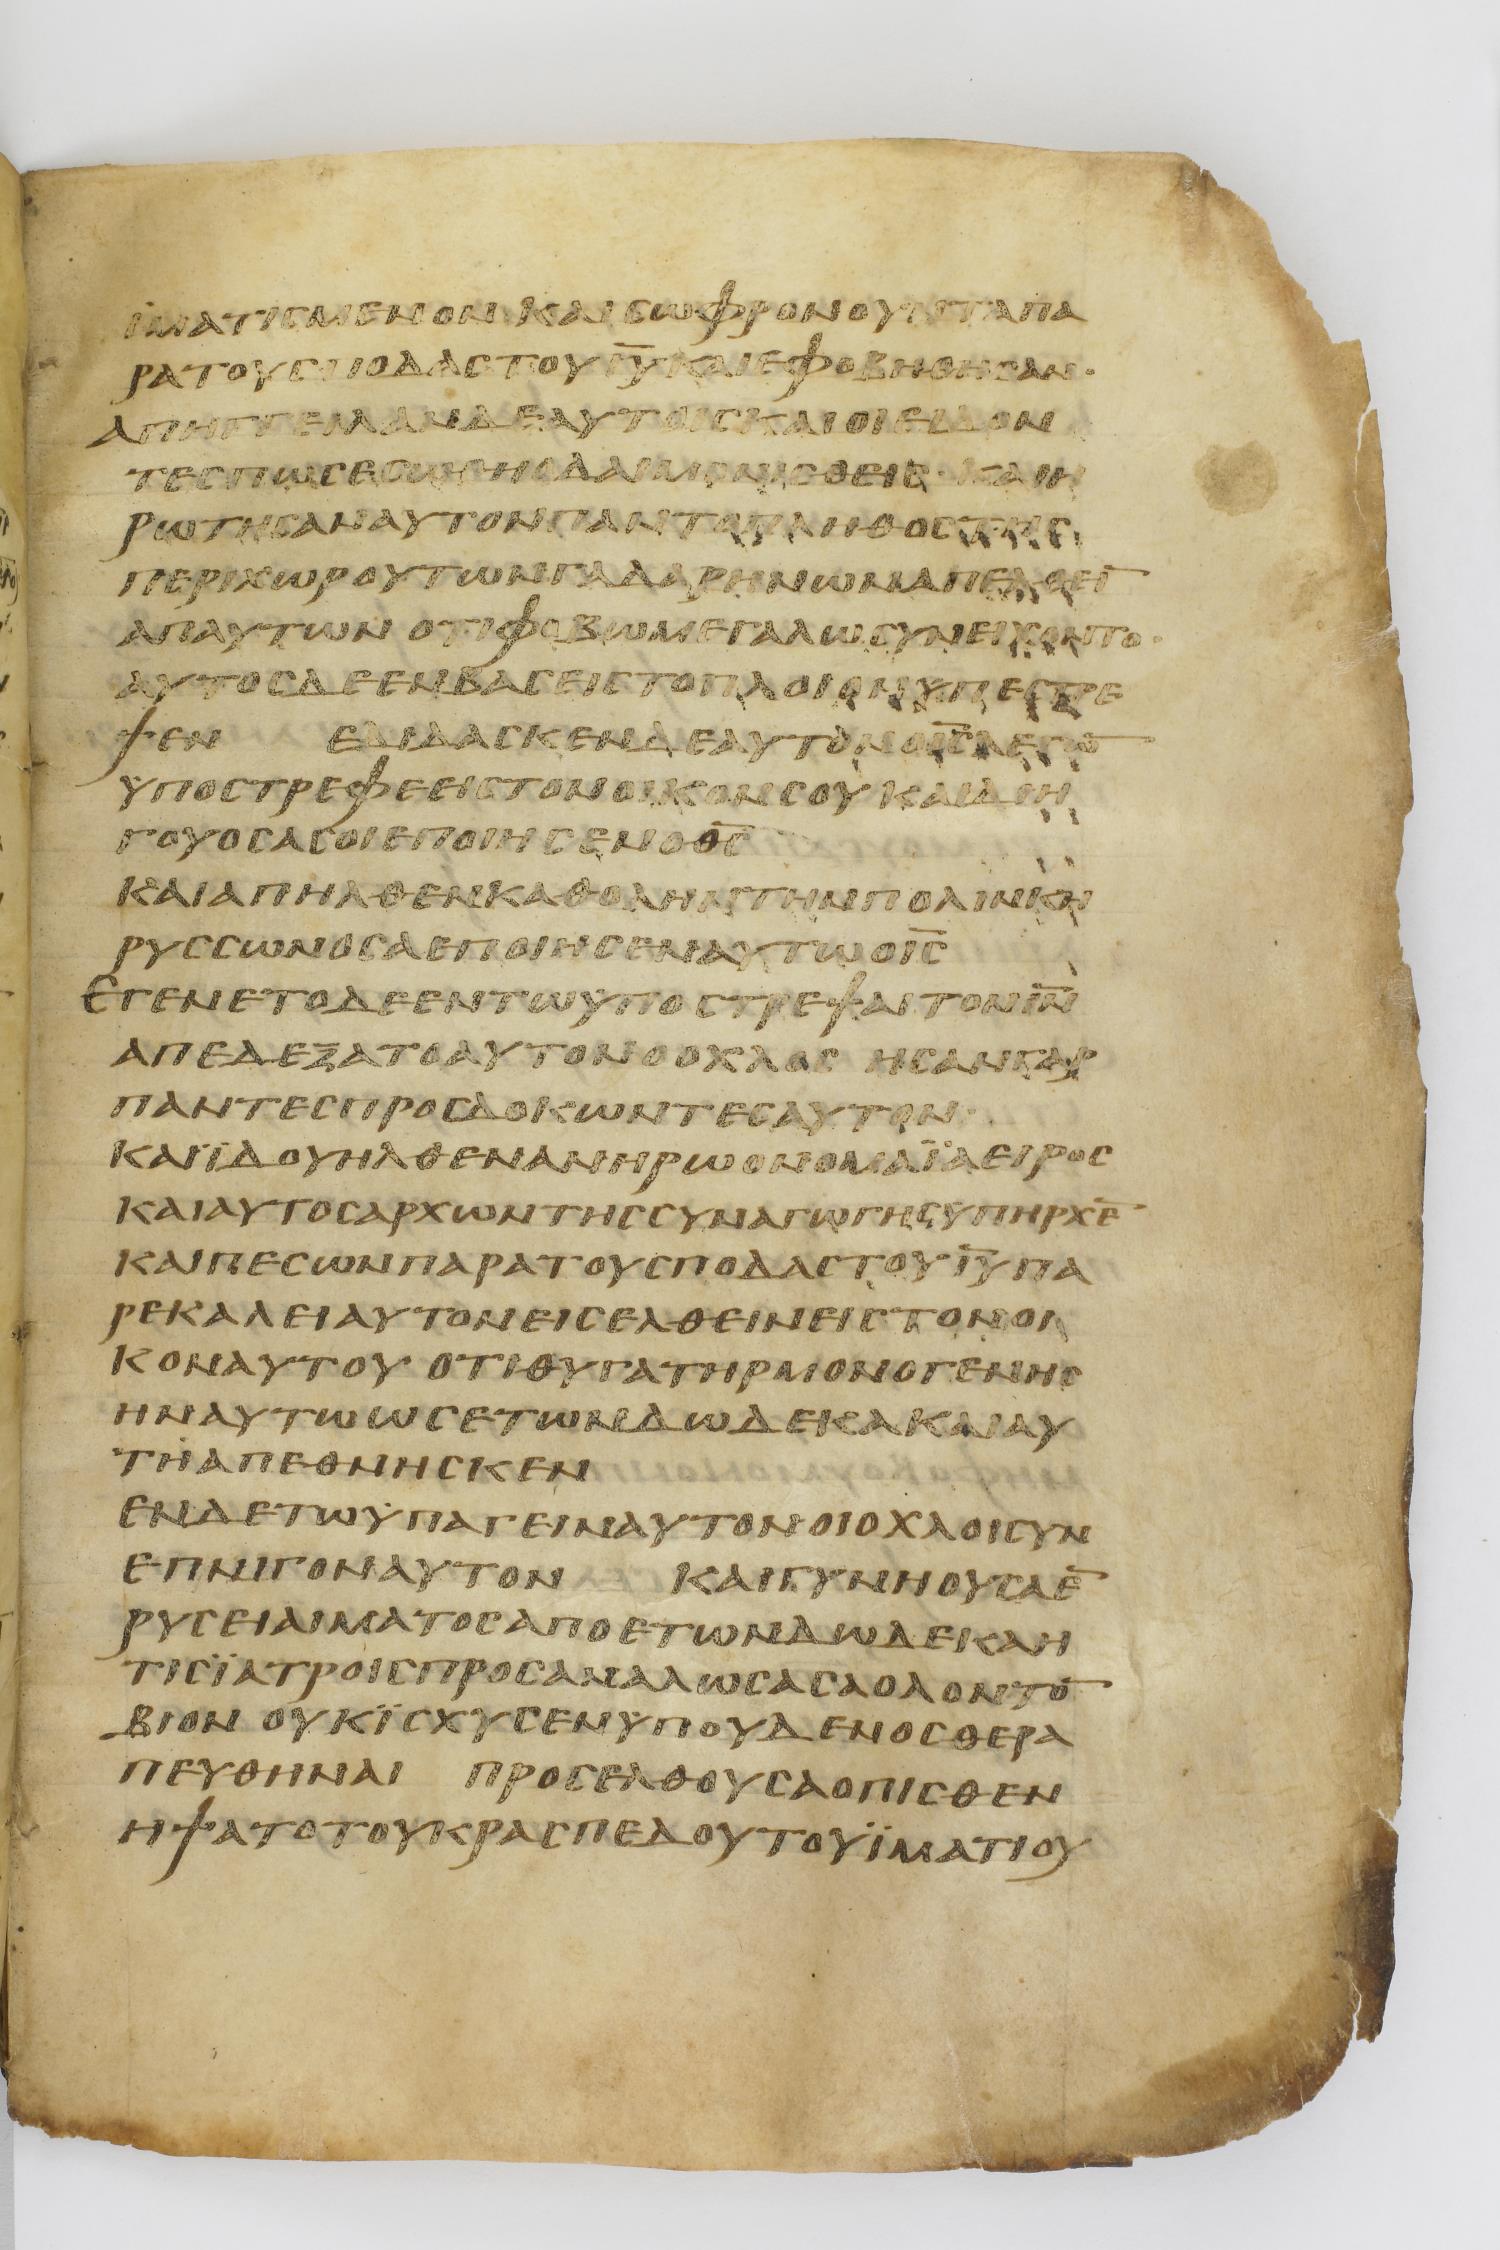 ΪΜΑΤΙϹΜΕΝΟΝ ΚΑΙ ϹΩΦΡΟΝΟΥΝΤΑ ΠΑ
ΡΑ ΤΟΥϹ ΠΟΔΑϹ ΤΟΥ ΙΥ̅ ΚΑΙ ΕΦΟΒΗΘΗϹΑΝ·
ΑΠΗΓΓΕΙΛΑΝ ΔΕ ΑΥΤΟΙϹ ΚΑΙ ΟΙ ΕΙΔΟΝ
ΤΕϹ ΠΩϹ ΕϹΩΘΗ Ο ΔΑΙΜΟΝΙϹΘΕΙϹ· ΚΑΙ Η
ΡΩΤΗϹΑΝ ΑΥΤΟΝ ΠΑΝ ΤΟ ΠΛΗΘΟϹ ΤΗϹ
ΠΕΡΙΧΩΡΟΥ ΤΩΝ ΓΑΔΑΡΗΝΩΝ ΑΠΕΛΘΕΙ̅
ΑΠ ΑΥΤΩΝ ΟΤΙ ΦΟΒΩ ΜΕΓΑΛΩ ϹΥΝΕΙΧΟΝΤΟ·
ΑΥΤΟϹ ΔΕ ΕΝΒΑϹ ΕΙϹ ΤΟ ΠΛΟΙΟΝ ΥΠΕϹΤΡΕ
ΨΕΝ ΕΔΙΔΑϹΚΕΝ ΔΕ ΑΥΤΟΝ Ο ΙϹ̅ ΛΕΓΩ̅
ΥΠΟϹΤΡΕΦΕ ΕΙϹ ΤΟΝ ΟΙΚΟΝ ϹΟΥ ΚΑΙ ΔΙΗ
ΓΟΥ ΟϹΑ ϹΟΙ ΕΠΟΙΗϹΕΝ Ο ΘϹ̅
ΚΑΙ ΑΠΗΛΘΕΝ ΚΑΘ ΟΛΗΝ ΤΗΝ ΠΟΛΙΝ ΚΗ
ΡΥϹϹΩΝ ΟϹΑ ΕΠΟΙΗϹΕΝ ΑΥΤΩ Ο ΙϹ̅
ΕΓΕΝΕΤΟ ΔΕ ΕΝ ΤΩ ΥΠΟϹΤΡΕΨΑΙ ΤΟΝ ΙΝ̅
ΑΠΕΔΕΞΑΤΟ ΑΥΤΟΝ Ο ΟΧΛΟϹ ΗϹΑΝ ΓΑΡ
ΠΑΝΤΕϹ ΠΡΟϹΔΟΚΩΝΤΕϹ ΑΥΤΟΝ·
ΚΑΙ ΪΔΟΥ ΗΛΘΕΝ ΑΝΗΡ Ω ΟΝΟΜΑ ΪΑΕΙΡΟϹ
ΚΑΙ ΑΥΤΟϹ ΑΡΧΩΝ ΤΗϹ ϹΥΝΑΓΩΓΗϹ ΥΠΗΡΧΕ̅
ΚΑΙ ΠΕϹΩΝ ΠΑΡΑ ΤΟΥϹ ΠΟΔΑϹ ΤΟΥ ΙΥ̅ ΠΑ
ΡΕΚΑΛΕΙ ΑΥΤΟΝ ΕΙϹΕΛΘΕΙΝ ΕΙϹ ΤΟΝ ΟΙ
ΚΟΝ ΑΥΤΟΥ ΟΤΙ ΘΥΓΑΤΗΡ ΜΟΝΟΓΕΝΗϹ
ΗΝ ΑΥΤΩ ΩϹ ΕΤΩΝ ΔΩΔΕΚΑ ΚΑΙ ΑΥ
ΤΗ ΑΠΕΘΝΗϹΚΕΝ
ΕΝ ΔΕ ΤΩ ΥΠΑΓΕΙΝ ΑΥΤΟΝ ΟΙ ΟΧΛΟΙ ϹΥΝ
ΕΠΝΙΓΟΝ ΑΥΤΟΝ ΚΑΙ ΓΥΝΗ ΟΥϹΑ Ε̅
ΡΥϹΕΙ ΑΙΜΑΤΟϹ ΑΠΟ ΕΤΩΝ ΔΩΔΕΚΑ Η
ΤΙϹ ΪΑΤΡΟΙϹ ΠΡΟϹΑΝΑΛΩϹΑϹΑ ΟΛΟΝ ΤΟ̅
ΒΙΟΝ ΟΥΚ ΪϹΧΥϹΕΝ ΥΠ ΟΥΔΕΝΟϹ ΘΕΡΑ
ΠΕΥΘΗΝΑΙ ΠΡΟϹΕΛΘΟΥϹΑ ΟΠΙϹΘΕΝ
ΗΨΑΤΟ ΤΟΥ ΚΡΑϹΠΕΔΟΥ ΤΟΥ ΪΜΑΤΙΟΥ